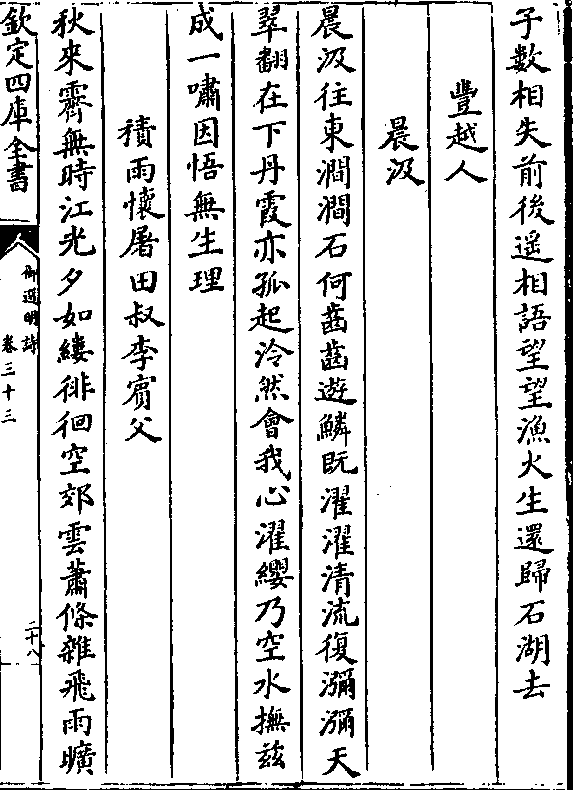 子數相失前後遥相語望望漁火生還歸石湖去
豐越人
晨汲
晨汲往東澗澗石何齒齒遊鱗既濯濯清流復瀰瀰天
翠翻在下丹霞亦孤起泠然會我心濯纓乃空水撫兹
成一嘯因悟無生理
積雨懷屠田叔李賓父
秋來霽無時江光夕如縷徘徊空郊雲蕭條雜飛雨曠
欽定四庫全書
御選明詩
卷三十三
二十八